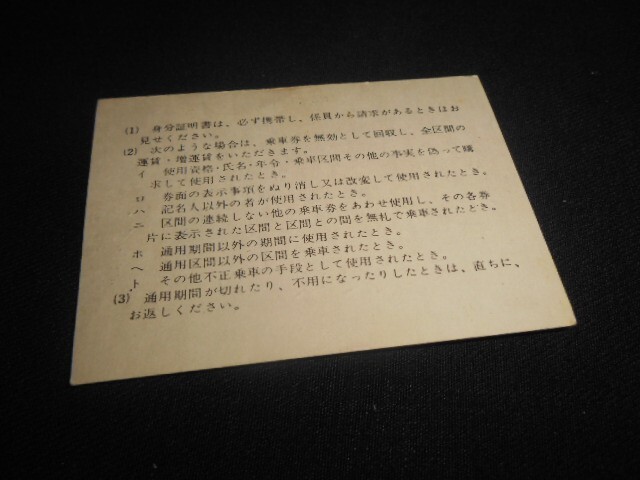 (1) 身分証明書は、必ず携帯し、係員から請求があるときはお
見せください。
(2) 次のような場合は、乗車券を無効として回収し、全区間の
運賃・増運賃をいただきます。
イ 使用資格・氏名・年令・乗車区間その他の事実を偽って購
求して使用されたとき。
ロ 券面の表示事項をぬり消し又は改変して使用されたとき。
ハ 記名人以外の者が使用されたとき。
ニ 区間の連続しない他の乗車券をあわせ使用し、その各券
片に表示された区間と区間との間を無札で乗車されたとき。
ホ 通用期間以外の期間に使用されたとき。
ヘ 通用区間以外の区間を乗車されたとき。
ト その他不正乗車の手段として使用されたとき。
(3) 通用期間が切れたり、不用になったりしたときは、直ちに、
お返しください。